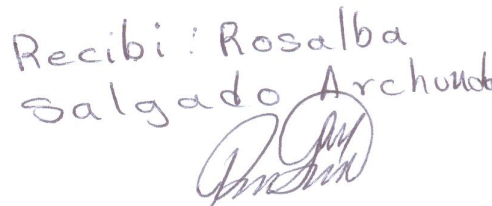 Recibi: Rosalba
Salgado Archund